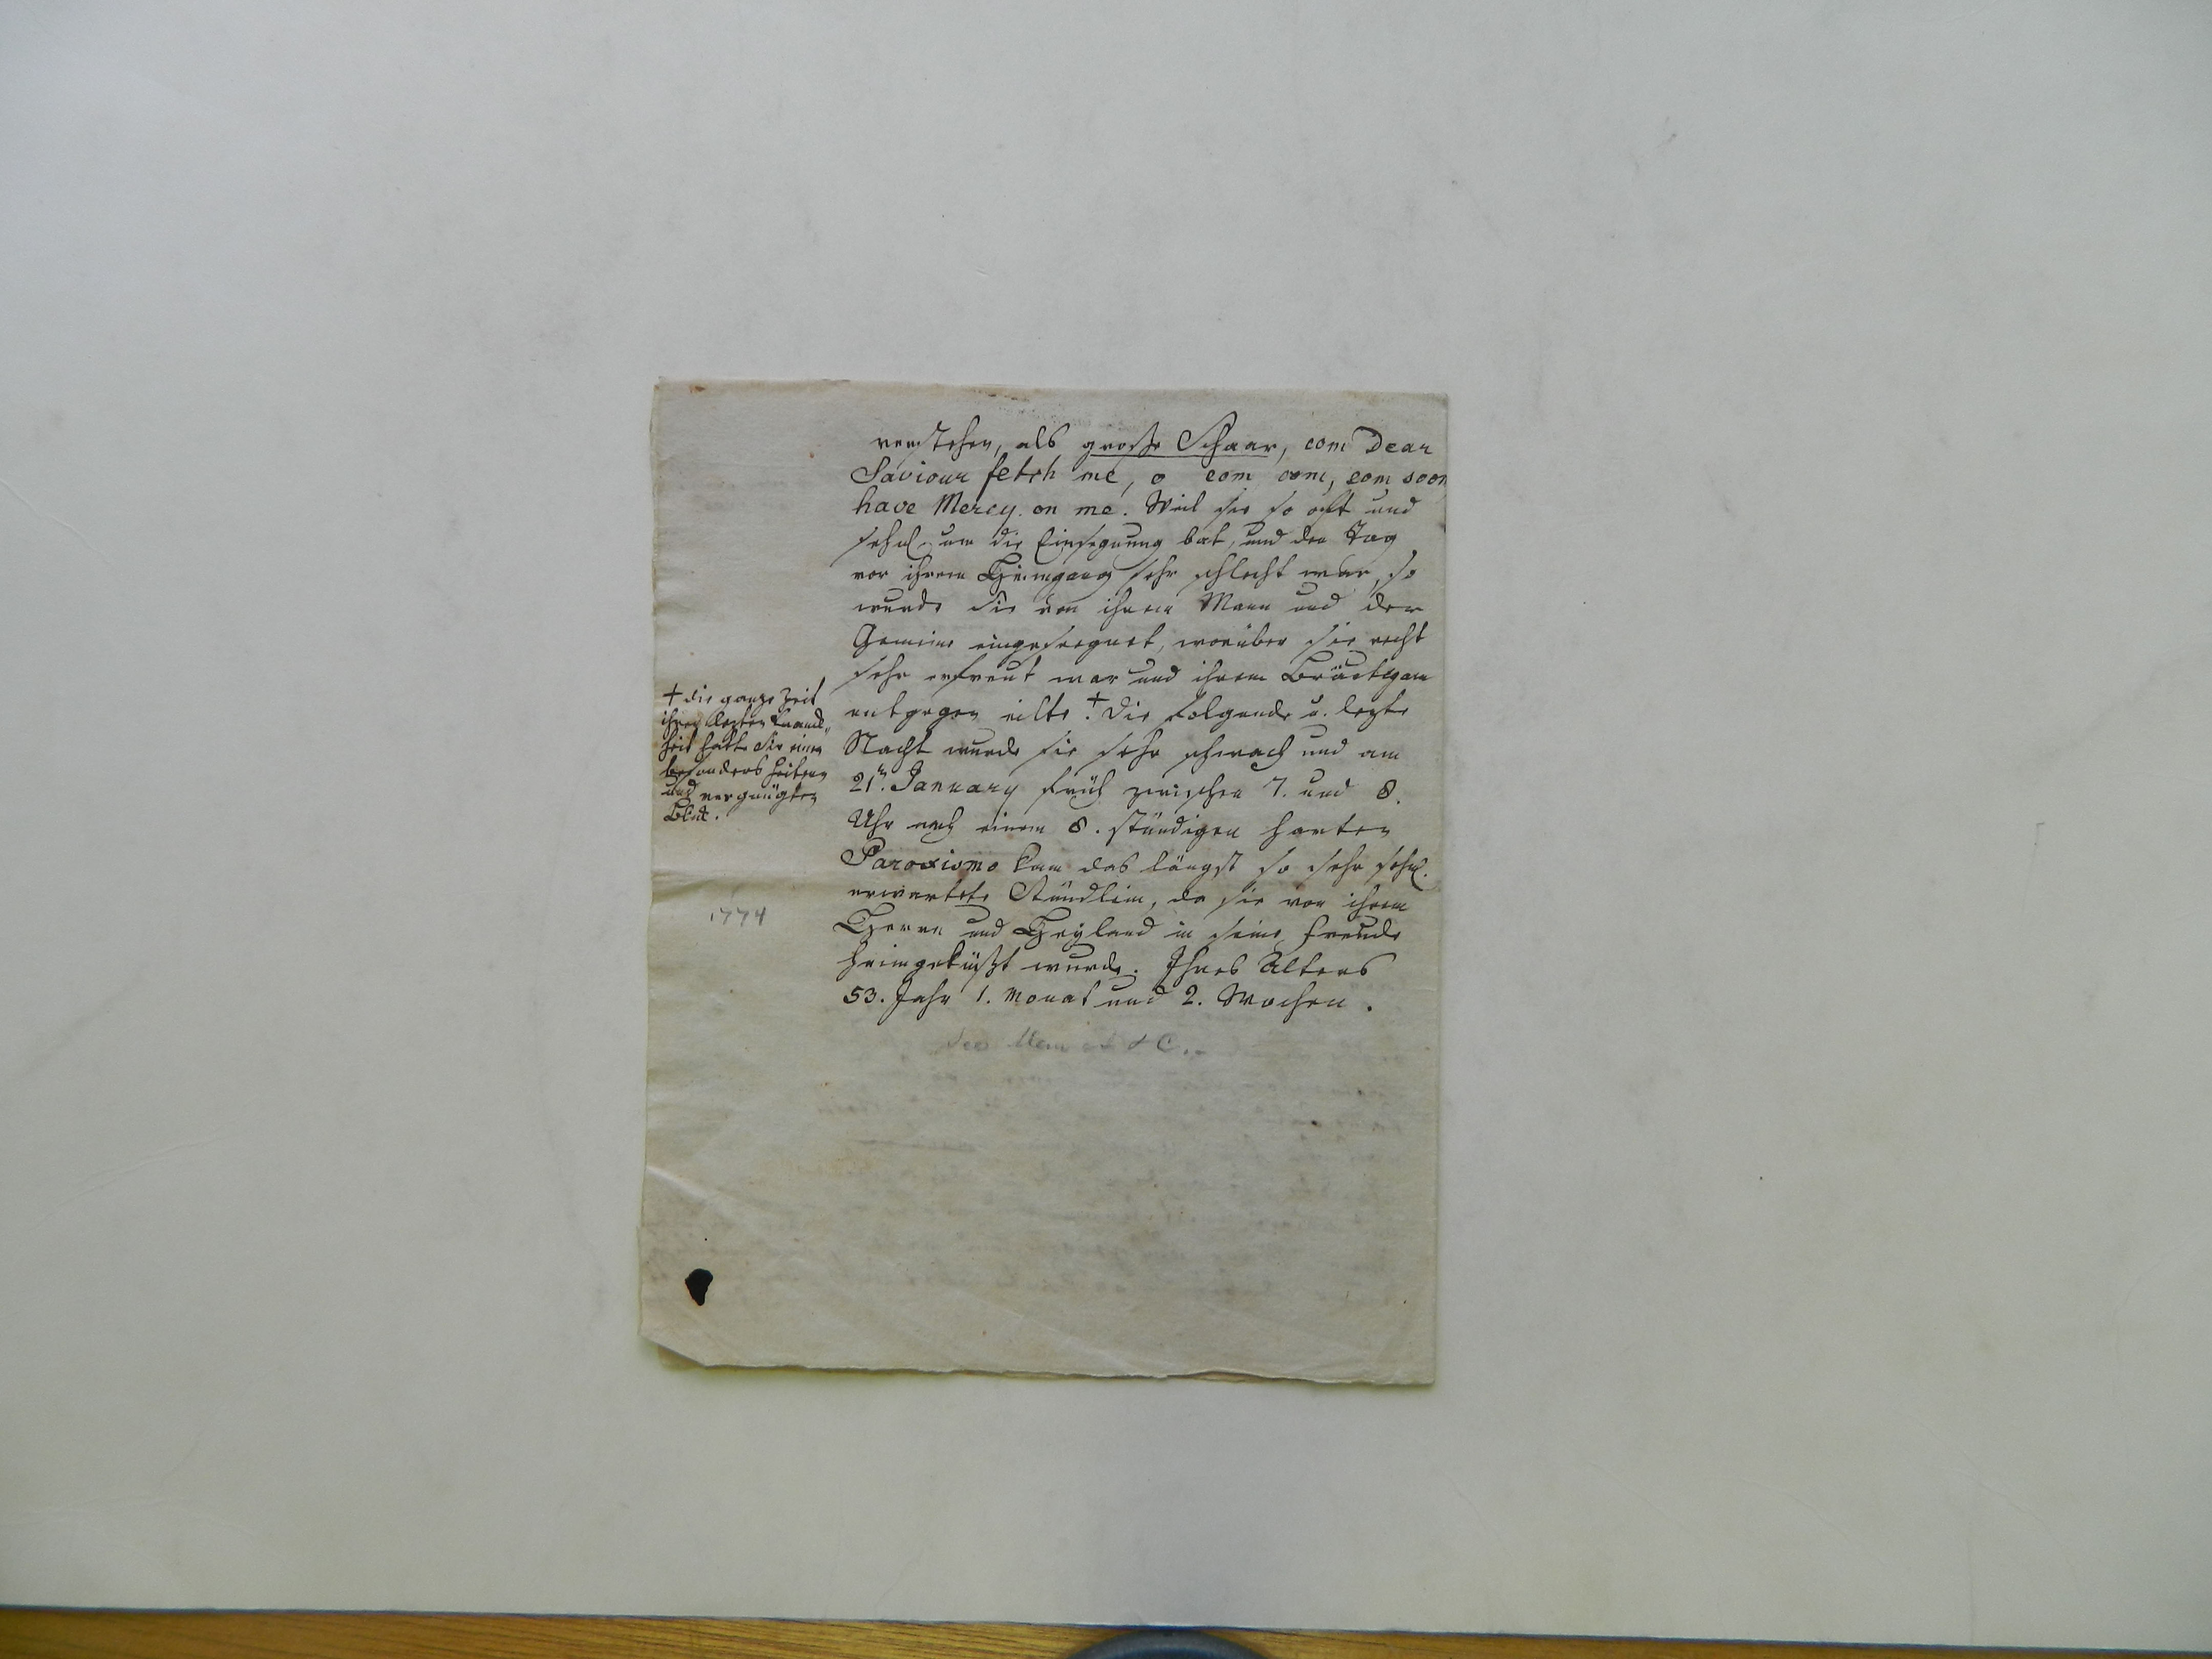 verstehen, als große Schaar, com Dear
Saviour fetch me, o com com, com soon
have Mercy on me. Weil sie so oft und
sehnl. um die Einsegnung bat, und den Tag
vor ihrem Heimgang sehr schlecht war, so
wurde sie von ihrem Mann und der
Gemeine eingeseegnet, worüber sie recht
sehr erfreut war und ihrem Bräutigam
entgegen eilte. + Die folgende u. lezte
Nacht wurde sie sehr schwach und am
21n. January früh zwischen 7. und 8.
Uhr nach einem 8. stündigen harten
Paroxismo kam das längst so sehr sehnl.
erwartete Stündlein, da sie von ihrem
Herrn und Heyland in seine Freude
heimgeküßt wurde. Ihres Alters
53. Jahr 1. Monat und 2. Wochen.
+ die ganze Zeit
ihrer lezten Kranck-
heit hatte sie einen
besonders heitern
und vergnügten
Blick.
1774
See Mem